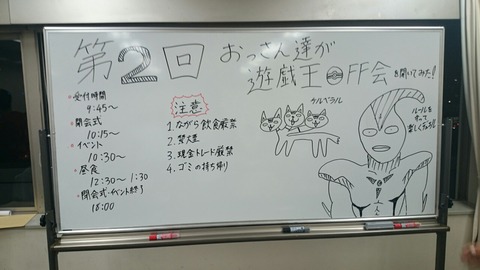 第2回 おっさん達が
遊戯王OFF会を開いてみた!!
・受付時間
9:45〜
・開会式
10:15〜
・イベント
10:30〜
・昼食
12:30〜1:30
・閉会式・イベント終了
16:00
注意
1. ながら飲食厳禁
2. 禁犬星
3. 現金トレード厳禁
4. ゴミの持ち帰り
ケルベラル
ルールを
守って
楽しくデュエル!